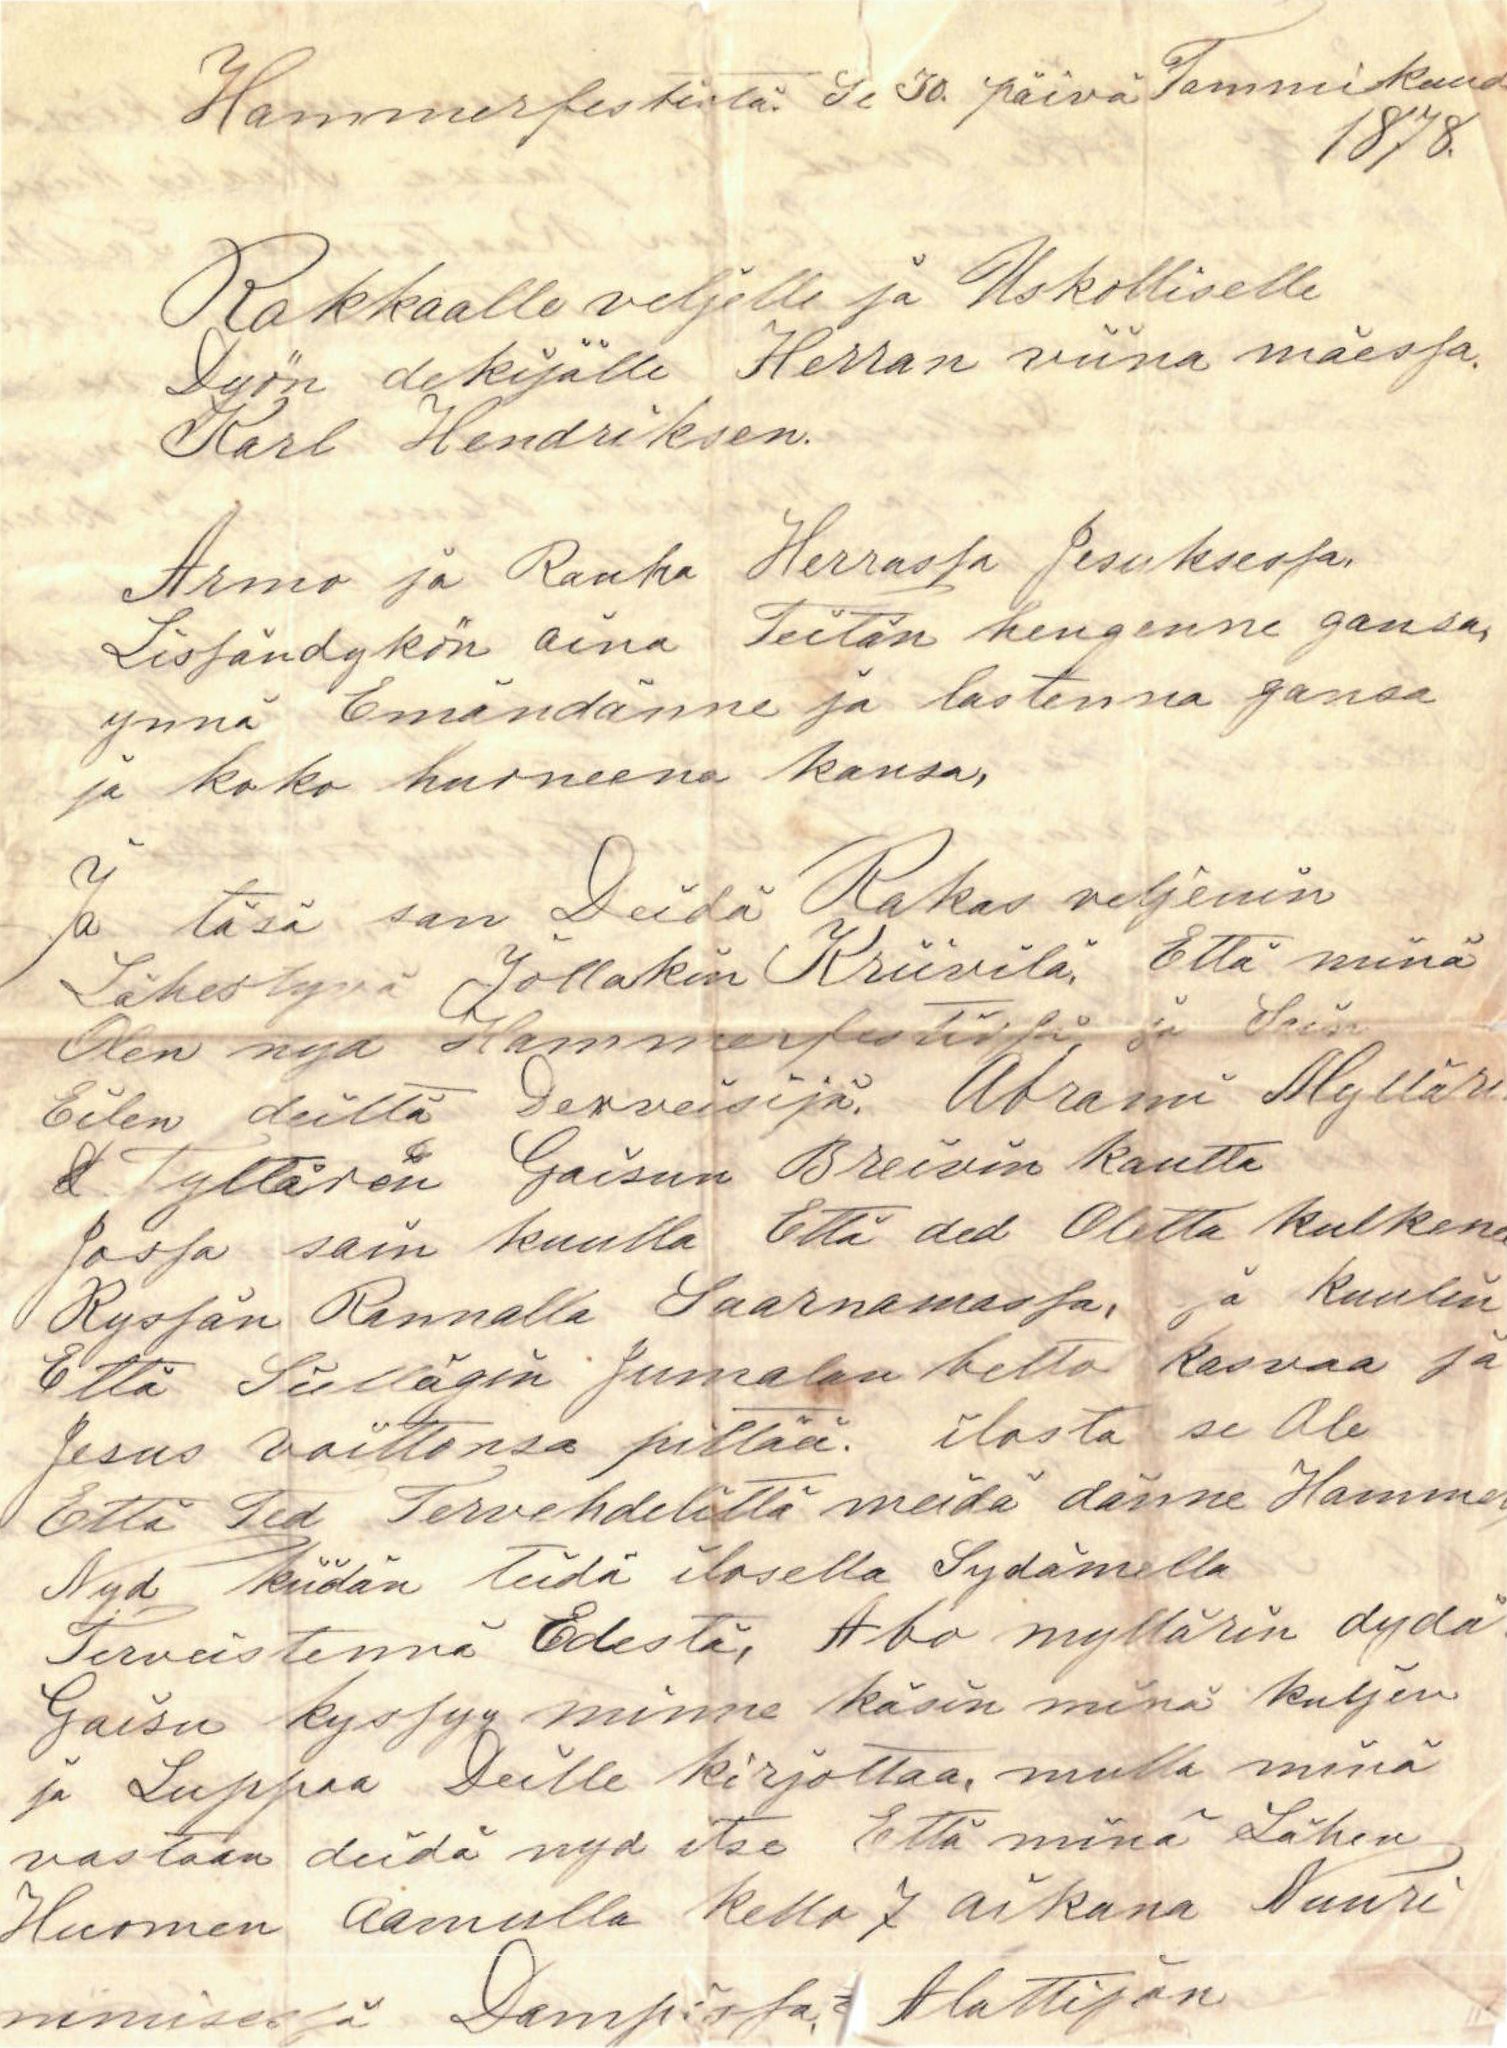 Hammerfestistä. Se 30. päivä Tammikuud
1878.
Rakkaalle veljelle ja Uskolliselle
Dyön dekijälle Herran viina mäessa.
Karl Hendriksen.
Armo ja Rauha Herrassa Jesuksessa.
Lissändykön aina Teitän hengenne gansa,
ynnä Emändänne ja lastenna gansa
ja koko hurneena kansa,
Ja täsä san Deidä Rakas veljenin
Lähestyvä Jollakin Kriivilä, Että minä
Olen nyd Hammerfestissä, ja Sain
Eilen deiltä Derveisijä. Abrami Myllärin
Tyttären Gaisun Breivin kautta
Jossa sain kuulla Että ded Oletta kulkene
Ryssän Rannalla Saarnamassa, ja kuulin
Että Siellägin Jumalan velto kasvaa ja
Jesus voittonsa pittää. ilosta se Ole
Että Ted Tervehdelittä meidä dänne Hammer
Nyd kiidän teidä ilosella Sydämella
Terveistennä Edestä, Abo myllärin dydä
Gaisu kyssyy minne käsin minä kuljen
ja Luppaa Deille kirjottaa, mutta minä
vastaan deidä nyd itse Että minä Lähen
Huomen aamulla kello 7 aikana Nuuri
nimisessä Dampissa, Alattijon